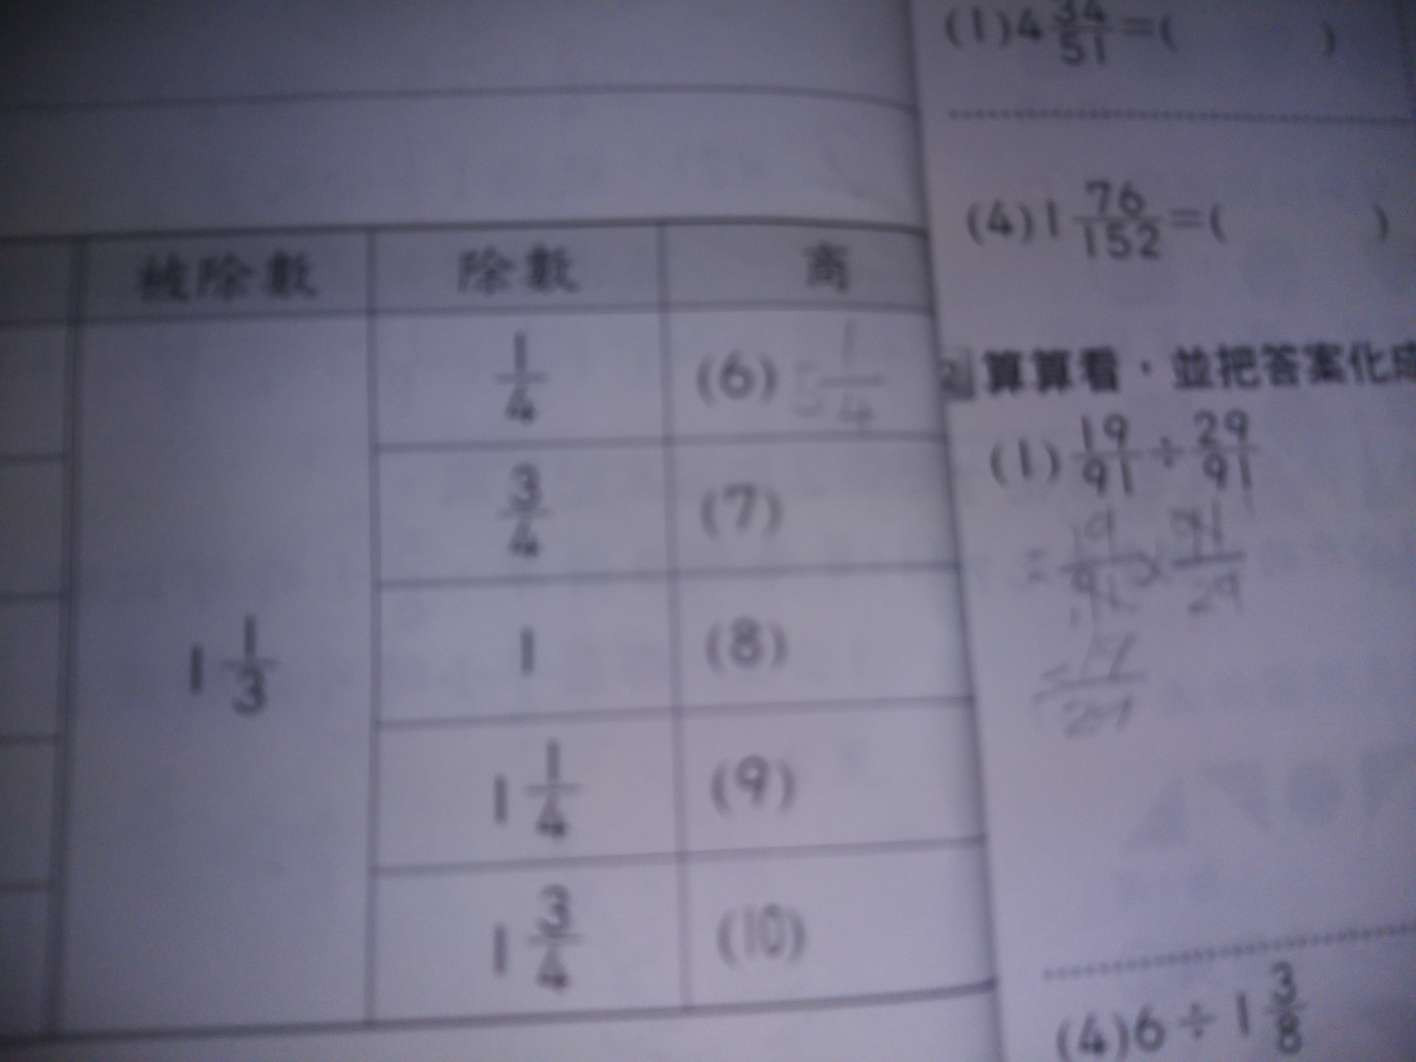 被除數 除數 商
1 1/3
1/4 (6) 5 1/4
3/4 (7)
1 (8)
1 1/4 (9)
1 3/4 (10)
(1) 4 34/51 =( )
(4) 1 76/152 =( )
算算看,並把答案化成
(1) 19/91 ÷ 29/91
= 19/91 × 91/29
= 19/29
(4) 6 ÷ 1 3/8